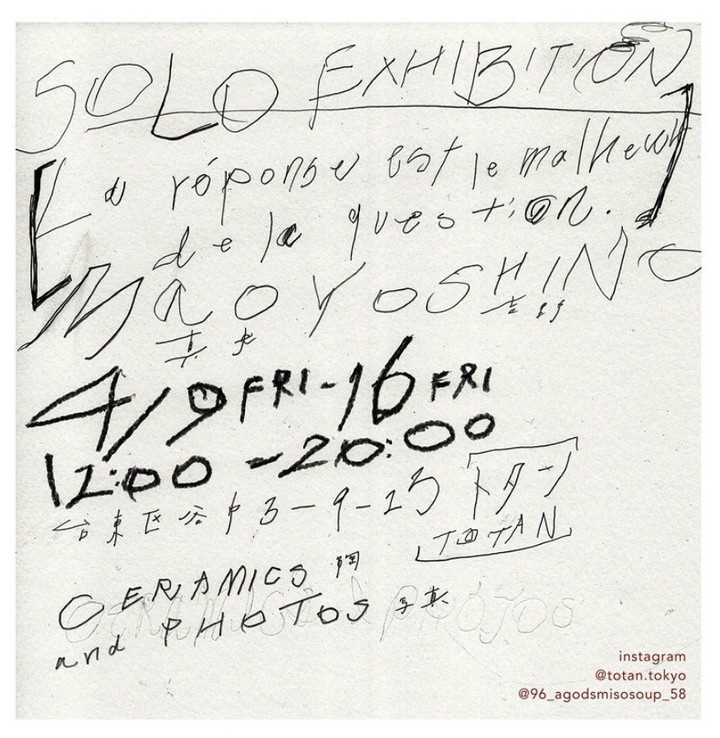 SOLO EXHIBITION
[La réponse est le malheur
de la question.]
MaO YOSHINO
吉野
4/9 FRI - 16 FRI
12:00 - 20:00
台東区谷中 3-9-13 トタン
TOTAN
CERAMICS 陶
and PHOTOS 写真
instagram
@totan.tokyo
@96_agodsmisosoup_58